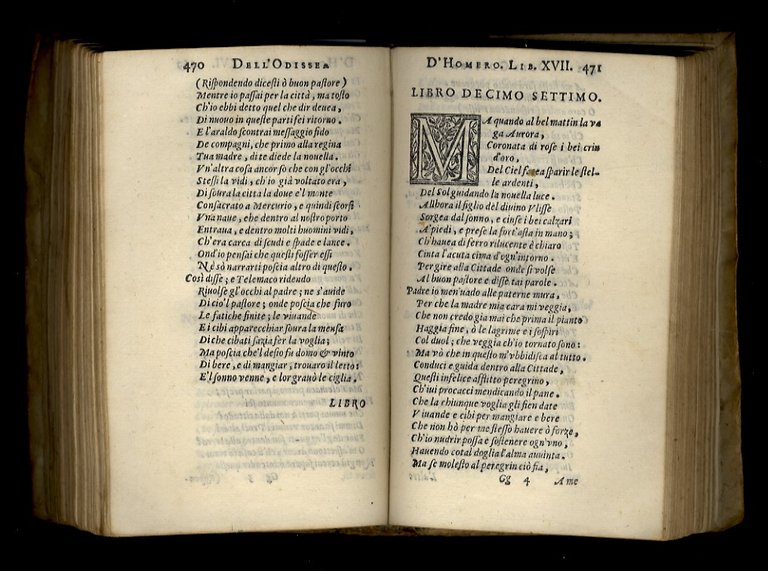 470 DELL'ODISSEA
(Rispondendo dicesti ò buon pastore)
Mentre io passai per la città, ma tosto
Ch'io ebbi detto quel che dir deuea,
Di nuouo in queste parti fei ritorno.
E l'araldo scontrai messaggio fido
De compagni, che primo alla regina
Tua madre, di te diede la nouella.
Vn'altra cosa ancor so che con gl'occhi
Stessi la vidi, ch'io già voltato era,
Di soura la citta la doue e'l monte
Consacrato a Mercurio, e quindi scorsi
Vna naue, che dentro al nostro porto
Entraua, e dentro molti huomini vidi,
Ch'era carca di scudi e spade e lance.
Ond'io pensai che questi fosser essi
Nè sò narrarti poscia altro di questo.
Così disse; e Telemaco ridendo
Riuolse gl'occhi al padre; ne s'auide
Di ciò'l pastore; onde poscia che furo
Le fatiche finite; le viuande
E i cibi apparecchiar soura la mensa
Di che cibati sazia fer la voglia;
Ma poscia che'l desio fu domo & vinto
Di bere, e di mangiar, trouaro il letto:
E'l sonno venne, e lor grauò le ciglia.
LIBRO
D'HOMERO. LIB. XVII. 471
LIBRO DECIMO SETTIMO.
MA quando al bel mattin la va
ga Aurora,
Coronata di rose i bei crin
d'oro,
Del Ciel facea sparir le stel-
le ardenti,
Del Sol guidando la nouella luce.
Allhora il figlio del diuino Vlisse
Sorgea dal sonno, e cinse i bei calzari
A' piedi, e prese la fort'asta in mano;
Ch'hauea di ferro rilucente è chiaro
Cinta l'acuta cima d'ogn'intorno.
Per gire alla Cittade onde si volse
Al buon pastore e disse tai parole.
Padre io men'uado alle paterne mura,
Per che la madre mia cara mi veggia,
Che non credo gia mai che prima il pianto
Haggia fine, ò le lagrime e i sospiri
Col duol; che veggia ch'io tornato sono:
Ma vò che in questo m'vbbidisca al tutto.
Conduci e guida dentro alla Cittade,
Questi infelice afflitto peregrino,
Ch'iui procacci mendicando il pane.
Che la chiunque voglia gli fien date
Viuande e cibi per mangiare e bere
Che non hò per me stesso hauere ò forze,
Ch'io nudrir possa e sostenere ogn'vno,
Hauendo cotal doglia l'alma auuinta.
Ma se molesto al peregrin ciò fia,
Gg 4 A me